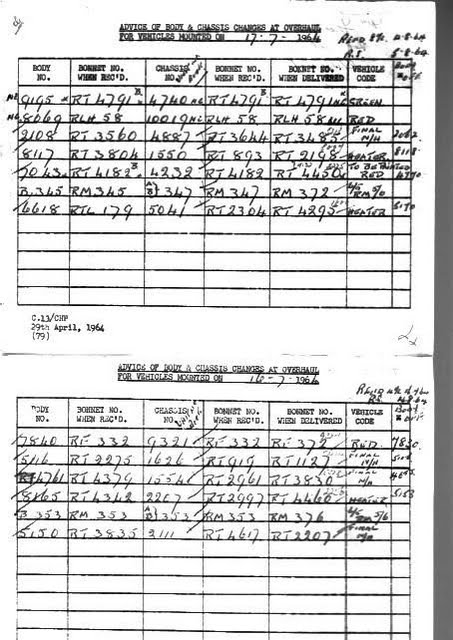 ADVICE OF BODY & CHASSIS CHANGES AT OVERHAUL
FOR VEHICLES MOUNTED ON 17-7-1964
BODY NO. BONNET NO. WHEN REC'D. CHASSIS NO. BONNET NO. WHEN REC'D. BONNET NO. WHEN DELIVERED VEHICLE CODE
9195 RT 4791 4740 RT 4791 RT 4791 GREEN
8069 RLH 58 10019 RLH 58 RLH 58 RED
2108 RT 3560 4887 RT 3644 RT 3485 FINAL N/H
8117 RT 3804 1550 RT 893 RT 2198 HEATER 8118
7043 RT 4182 4232 RT 4182 RT 4450 RED 4770
B.345 RM 345 A/B 347 RM 347 RM 372
6618 RTL 179 5041 RT 2304 RT 4295 HEATER
C.13/CHP
29th April, 1964
(79)
ADVICE OF BODY & CHASSIS CHANGES AT OVERHAUL
FOR VEHICLES MOUNTED ON 16-7-1964
BODY NO. BONNET NO. WHEN REC'D. CHASSIS NO. BONNET NO. WHEN REC'D. BONNET NO. WHEN DELIVERED VEHICLE CODE
7840 RF 332 9321 RF 332 RF 372 RED 7830
5116 RT 2275 1626 RT 919 RT 1127 FINAL N/H
RT 4761 RT 4379 1554 RT 2961 RT 3830 FINAL N/H
8165 RT 4342 2267 RT 2997 RT 4460 HEATER
B 353 RM 353 A/B 353 RM 353 RM 376
5150 RT 3835 2111 RT 4617 RT 2207 FINAL N/H